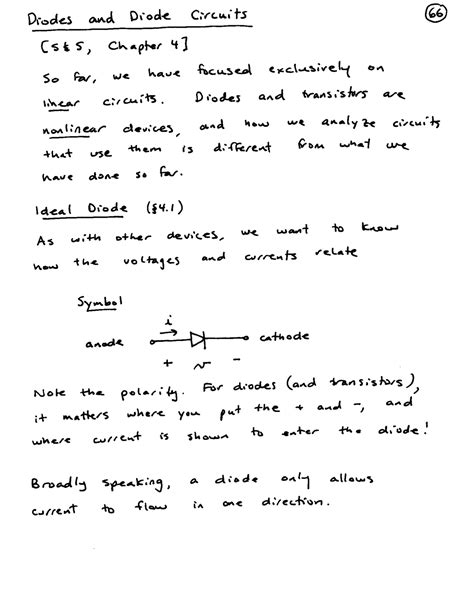 Diodes and Diode Circuits
66
[S&S, Chapter 4]
So far, we have focused exclusively on
linear circuits. Diodes and transistors are
nonlinear devices, and how we analyze circuits
that use them is different from what we
have done so far.
Ideal Diode (§4.1)
As with other devices, we want to know
how the voltages and currents relate
Symbol
i
anode cathode
+ v -
Note the polarity. For diodes (and transistors),
it matters where you put the + and -, and
where current is shown to enter the diode!
Broadly speaking, a diode only allows
current to flow in one direction.